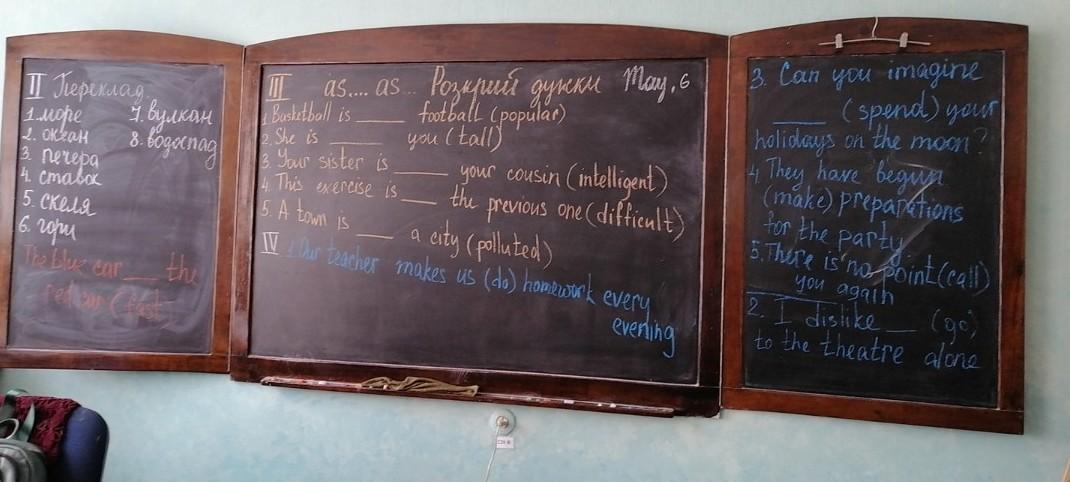 II Переклад
1. море 7. вулкан
2. океан 8. водоспад
3. печера
4. ставок
5. скеля
6. гори
The blue car ___ the
red car (fast)
III as.... as... Розкрий дужки May, 6
1. Basketball is ___ football (popular)
2. She is ___ you (tall)
3. Your sister is ___ your cousin (intelligent)
4. This exercise is ___ the previous one (difficult)
5. A town is ___ a city (polluted)
IV 1. Our teacher makes us (do) homework every
evening
3. Can you imagine
___ (spend) your
holidays on the moon?
4. They have begun
(make) preparations
for the party
5. There is no point (call)
you again
2. I dislike ___ (go)
to the theatre alone